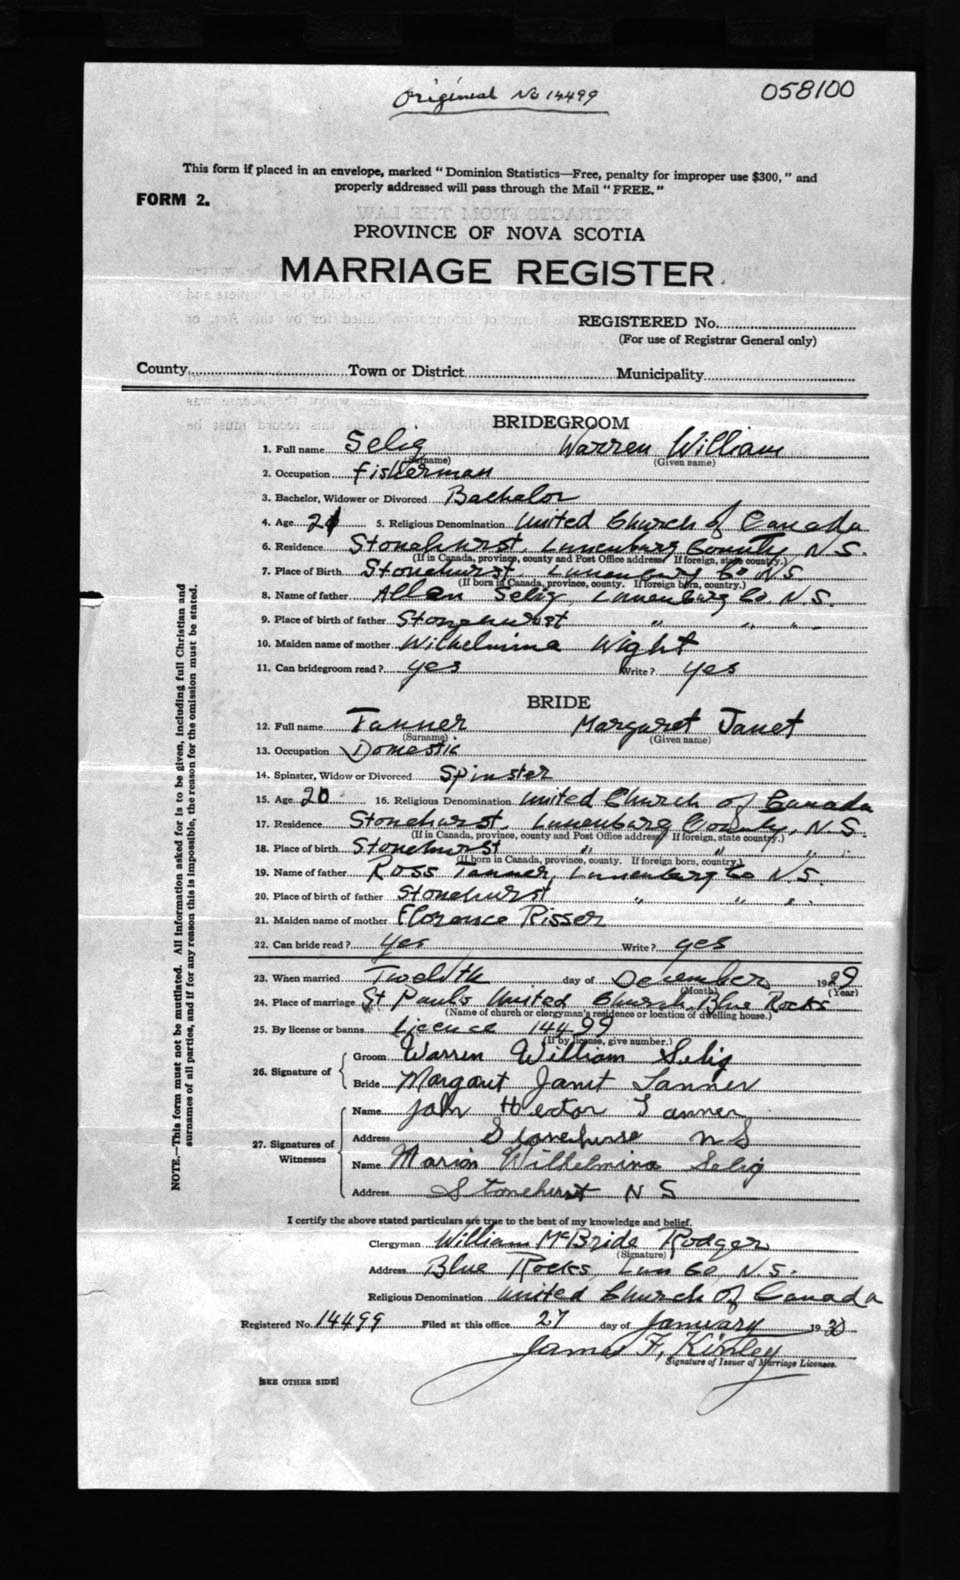 Original No 14499
058100
This form if placed in an envelope, marked "Dominion Statistics—Free, penalty for improper use $300," and
properly addressed will pass through the Mail "FREE."
FORM 2.
PROVINCE OF NOVA SCOTIA
MARRIAGE REGISTER
REGISTERED No.
(For use of Registrar General only)
County Town or District Municipality
BRIDEGROOM
1. Full name Selig Warren William
(Surname) (Given name)
2. Occupation Fisherman
3. Bachelor, Widower or Divorced Bachelor
4. Age 21 5. Religious Denomination United Church of Canada
6. Residence Stonehurst, Lunenburg County N.S.
(If in Canada, province, county and Post Office address. If foreign, state country.)
7. Place of Birth Stonehurst Lunenburg Co N.S.
(If born in Canada, province, county. If foreign born, country.)
8. Name of father Allan Selig, Lunenburg Co. N.S.
9. Place of birth of father Stonehurst " " "
10. Maiden name of mother Wilhelmina Wight
11. Can bridegroom read? yes Write? yes
BRIDE
12. Full name Tanner Margaret Janet
(Surname) (Given name)
13. Occupation Domestic
14. Spinster, Widow or Divorced Spinster
15. Age 20 16. Religious Denomination United Church of Canada
17. Residence Stonehurst, Lunenburg County, N.S.
(If in Canada, province, county and Post Office address. If foreign, state country.)
18. Place of birth Stonehurst " " " "
(If born in Canada, province, county. If foreign born, country.)
19. Name of father Ross Tanner, Lunenburg Co N.S.
20. Place of birth of father Stonehurst " " "
21. Maiden name of mother Florence Risser
22. Can bride read? yes Write? yes
23. When married Twelfth day of December 1929
(Month) (Year)
24. Place of marriage St Pauls United Church, Blue Rocks
(Name of church or clergyman's residence or location of dwelling house.)
25. By license or banns Licence 14499
(If by license, give number.)
26. Signature of Groom Warren William Selig
Bride Margaret Janet Tanner
27. Signatures of Witnesses
Name John Hector Tanner
Address N S
Name Marion Wilhelmina Selig
Address Stonehurst N S
I certify the above stated particulars are true to the best of my knowledge and belief.
Clergyman William McBride Rodger
(Signature)
Address Blue Rocks, Lun Co, N.S.
Religious Denomination United Church of Canada
Registered No. 14499 Filed at this office 27 day of January 1930
James F. Kinley
Signature of Issuer of Marriage Licenses.
[SEE OTHER SIDE]
NOTE.—This form must not be mutilated. All information asked for is to be given, including full Christian and
surnames of all parties, and if for any reason this is impossible, the reason for the omission must be stated.